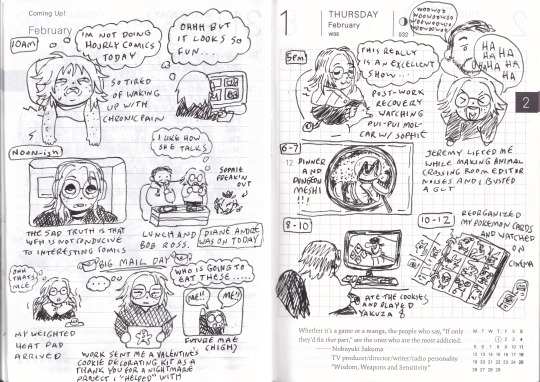 Coming Up!
February
10AM
I'M NOT DOING
HOURLY COMICS
TODAY
OHHH BUT
IT LOOKS SO
FUN...
SO TIRED
OF WAKING
UP WITH
CHRONIC PAIN
NOON-ish
THE SAD TRUTH IS THAT
WFH IS NOT CONDUCIVE
TO INTERESTING COMICS
I LIKE HOW
SHE TALKS
SOPHIE
FREAKIN
OUT
LUNCH AND
BOB ROSS.
DIANE ANDRE
WAS ON TODAY
BIG MAIL DAY
OHH
THATS
NICE
MY WEIGHTED
HEAT PAD
ARRIVED
...
WORK SENT ME A VALENTINE'S
COOKIE DECORATING KIT AS A
THANK YOU FOR A NIGHTMARE
PROJECT I "HELPED" WITH
WHO IS GOING TO
EAT THESE.....
ME!!
ME!!
FUTURE MAE
(HIGH)
1
THURSDAY
February
W05
032
2
5PM
THIS REALLY
IS AN EXCELLENT
SHOW...
POST-WORK
RECOVERY
WATCHING
PUI-PUI MOL-
CAR W/ SOPHIE
HA HA
HA HA
HA HA
HA
JEREMY LIFTED ME
WHILE MAKING ANIMAL
CROSSING ROOM EDITOR
NOISES AND I BUSTED
A GUT
6-7
12
DINNER
AND
DUNGEON
MESHI
!!!
8-10
ATE THE COOKIES
AND PLAYED
YAKUZA 8
10-12
REORGANIZED
MY POKEMON CARDS
AND WATCHED
ON
CINEMA
Whether it's a game or a manga, the people who say, "If only
they'd fix that part," are the ones who are the most addicted.
Nobuyuki Sakuma
TV producer/director/writer/radio personality
"Wisdom, Weapons and Sensitivity"
M T W T F S S
1 2 3 4
5 6 7 8 9 10 11
12 13 14 15 16 17 18
19 20 21 22 23 24 25
26 27 28 29